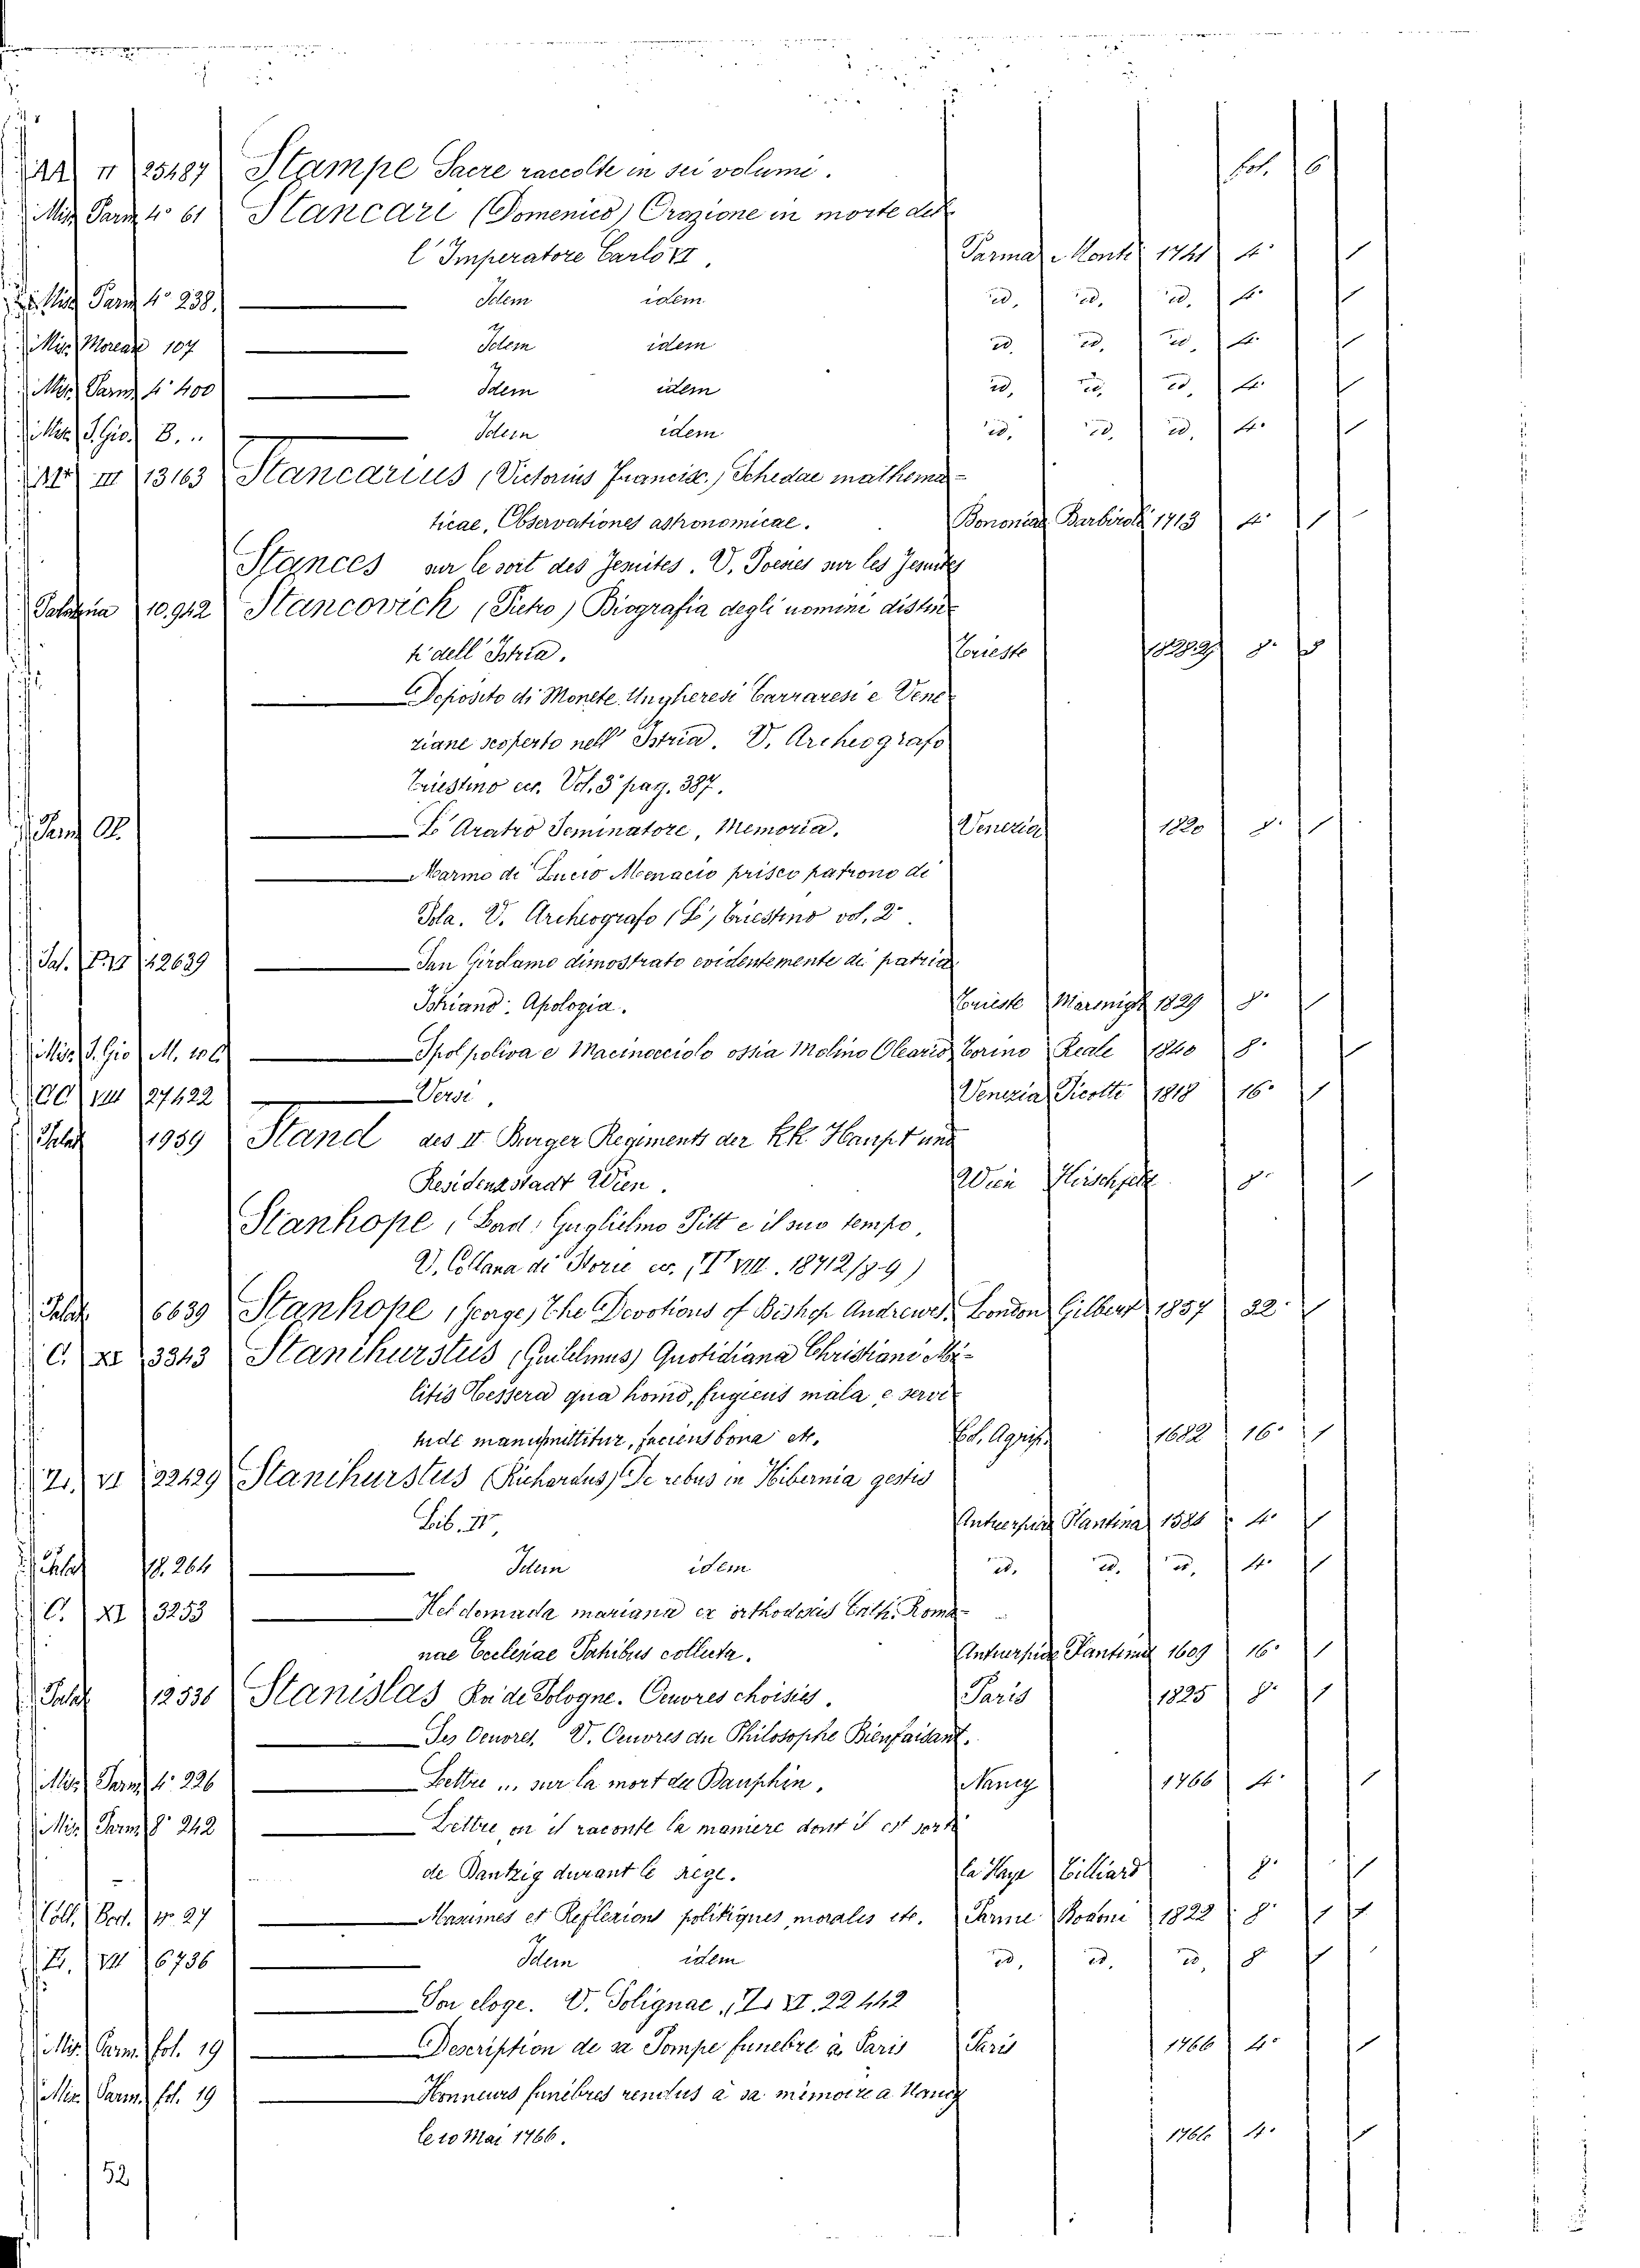 AA II 25487 Stampe Sacre raccolte in sei volumi. fol. 6
Misc. Parm. 4° 61 Stancari (Domenico) Orazione in morte del
l'Imperatore Carlo VI. Parma Monti 1741 4° 1
Misc. Parm. 4° 238. — Idem idem id. id. id. 4° 1
Misc. Moreau 107 — Idem idem id. id. id. 4° 1
Misc. Parm. 4° 400 — Idem idem id. id. id. 4° 1
Misc. S. Gio. B. — Idem idem id. id. id. 4° 1
III 13163 Stancarius (Victorius Francisc.) Schedae mathema-
ticae, Observationes astronomicae. Bononiae Barbiroli 1713 4° 1
Stances sur le sort des Jesuites. V. Poesies sur les Jesuites
Palatina 10.942 Stancovich (Pietro) Biografia degli uomini distin-
ti dell'Istria. Trieste 1828.29 8° 3
— Deposito di Monete Ungheresi Carraresi e Vene-
ziane scoperto nell'Istria. V. Archeografo
Triestino ec. Vol. 3° pag. 387.
Parm. — L'Aratro Seminatore, Memoria. Venezia 1820 8° 1
— Marmo di Lucio Menacio prisco patrono di
Pola. V. Archeografo (L') triestino vol. 2°.
Pal. 42639 — San Girolamo dimostrato evidentemente di patria
Istriano: Apologia. Trieste Marenigh 1829 8° 1
Misc. S. Gio M. 106 — Spolpoliva e Macinocciolo ossia Molino Oleario Torino Reale 1840 8° 1
VIII 27422 — Versi. Venezia Picotti 1818 16° 1
Palat. 1959 Stand des II Burger Regiments der kk. Haupt und
Residenzstadt Wien. Wien Hirschfeld 8° 1
Stanhope, Lord: Guglielmo Pitt e il suo tempo.
V. Collana di Storie ec. (T VIII. 18712/8-9)
Palat. 6639 Stanhope (George) The Devotions of Bishop Andrewes. London Gilbert 1857 32° 1
C. XI 3343 Stanihurstus (Guilelmus) Quotidiana Christiani Mi-
litis Tessera qua homo, fugiens mala e servi-
tute manumittitur, faciens bona etc. Col. Agrip. 1682 16° 1
Z. VI 22429 Stanihurstus (Richardus) De rebus in Hibernia gestis
Lib. IV. Antuerpiae Plantina 1584 4° 1
Palat. 18.264 — Idem idem id. id. id. 4° 1
C. XI 3253 — Hebdomada mariana ex orthodoxis Cath. Roma-
nae Ecclesiae Patribus collecta. Antuerpiae Plantina 1609 16° 1
Palat. 12530 Stanislas Roi de Pologne. Oeuvres choisies. Paris 1825 8° 1
— Ses Oeuvres. V. Oeuvres du Philosophe Bienfaisant.
Misc. Parm. 4° 226 — Lettre ... sur la mort du Dauphin. Nancy 1766 4° 1
Misc. Parm. 8° 242 — Lettre où il raconte la maniere dont il est sorti
de Dantzig durant le siege. la Haye Gilliard 8° 1
Coll. Bod. n° 27 — Maximes et Reflexions politiques, morales etc. Parme Bodoni 1822 8° 1
VII 6736 — Idem idem id. id. id. 8° 1
— Son eloge. V. Polignac, Z. VI. 22442
Misc. Parm. fol. 19 — Description de sa Pompe funebre à Paris Paris 1766 4° 1
Misc. Parm. fol. 19 — Honneurs funebres rendus à sa memoire a Nancy
le 10 Mai 1766. 1766 4° 1
52